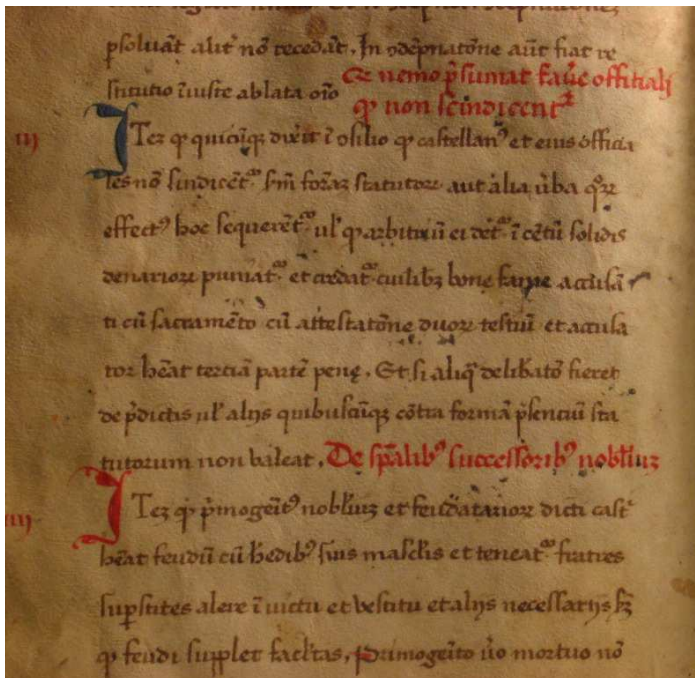 psoluāt alit̉ nō recedāt. In ɔdēpnatōne aūt fiat re
stitutio ı̄iuste ablata oı̄o
Qe nemo p̄sumat fau̓e offitiali
qͥ non scindicentᷣ
IIJ
ITeʒ qͥ quicūqʒ dixit ı̄ ɔsilio qͥ castellanꝰ et eius officia
les nō sindicētᷣ sm̄ formaʒ statutoꝝ aut alia ūba
effectꝰ hoc sequerētᷣ ul̓ qͥ arbitriū ı̄ cētū solidis
denarioꝝ puniatᷣ et credatᷣ cuilibʒ bone fame accusā
ti cū sacramēto cū attestatōne duoꝝ testiū et accusa
tor hēat terciā partē penę. Et si aliqͥ delibatō fieret
de p̄dictis ul̓ alijs quibuscūqʒ cōtra formā p̄senciū sta
tutorum non valeat. De sp̄alibꝰ successoribꝰ nobl̓iuʒ
IIIJ
ITeʒ qͥ p̄mogeı̄tꝰ nobl̓iuʒ et feudatarioꝝ dicti cast̓
hēat feudū cū h̄edibꝰ suis mascl̓is et teneatᷣ fratres
sup̄stites alere ı̄ uictu et vestitu et alijs necessarijs
qͥ feudi supplet facl̓tas. Primogeı̄to ūo mortuo nō